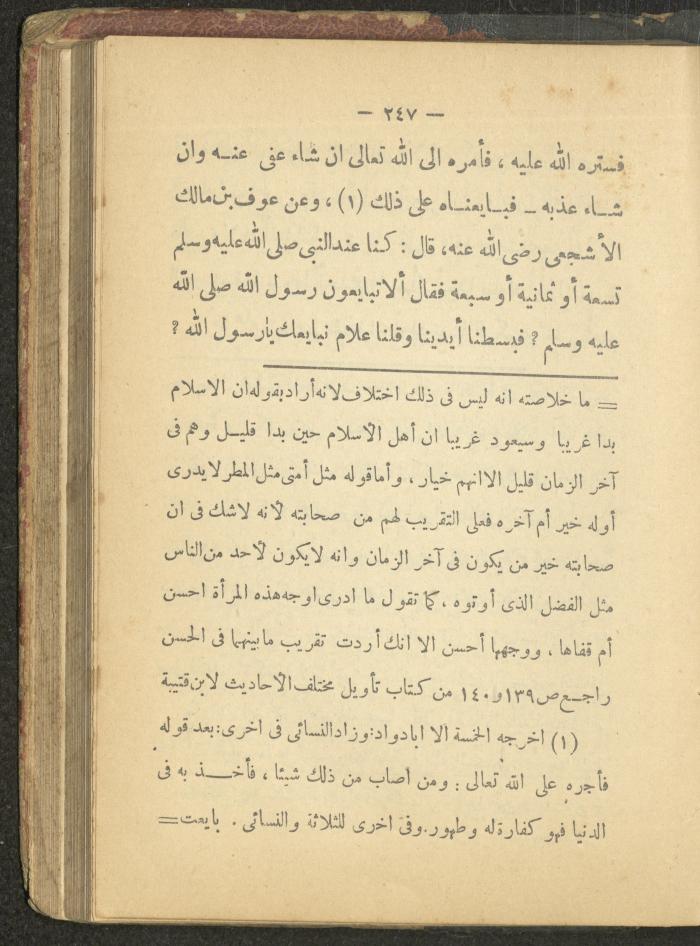 — ٢٤٧ —
فستره الله عليه ، فأمره الى الله تعالى ان شاء عفى عنه وان
شاء عذبه – فبايعناه على ذلك (١) ، وعن عوف بن مالك
الأشجعى رضى الله عنه، قال : كنا عند النبى صلى الله عليه وسلم
تسعة أو ثمانية أو سبعة فقال ألا تبايعون رسول الله صلى الله
عليه وسلم ? فبسطنا أيدينا وقلنا علام نبايعك يا رسول الله ?
= ما خلاصته انه ليس فى ذلك اختلاف لانه أراد بقوله ان الاسلام
بدا غريبا وسيعود غريبا ان أهل الأسلام حين بدا قليل وهم فى
آخر الزمان قليل الا انهم خيار ، وأما قوله مثل أمتى مثل المطر لا يدرى
أوله خير أم آخره فعلى التقريب لهم من صحابته لأنه لاشك فى ان
صحابته خير من يكون فى آخر الزمان وانه لا يكون لأحد من الناس
مثل الفضل الذى أوتوه ، كما تقول ما ادرى اوجه هذه المرأة احسن
أم قفاها ، ووجهها أحسن الا انك أردت تقريب ما بينهما فى الحسن
راجع ص ١٣٩ و ١٤٠ من كتاب تأويل مختلف الأحاديث لابن قتيبة
(١) اخرجه الخمسة الا ابا دواد: وزاد النسائى فى اخرى: بعد قوله
فأجره على الله تعالى : ومن اصاب من ذلك شيئا ، فأخذ به فى
الدنيا فهو كفارة له وطهور. وفى اخرى للثلاثة والنسائى . بايعت =